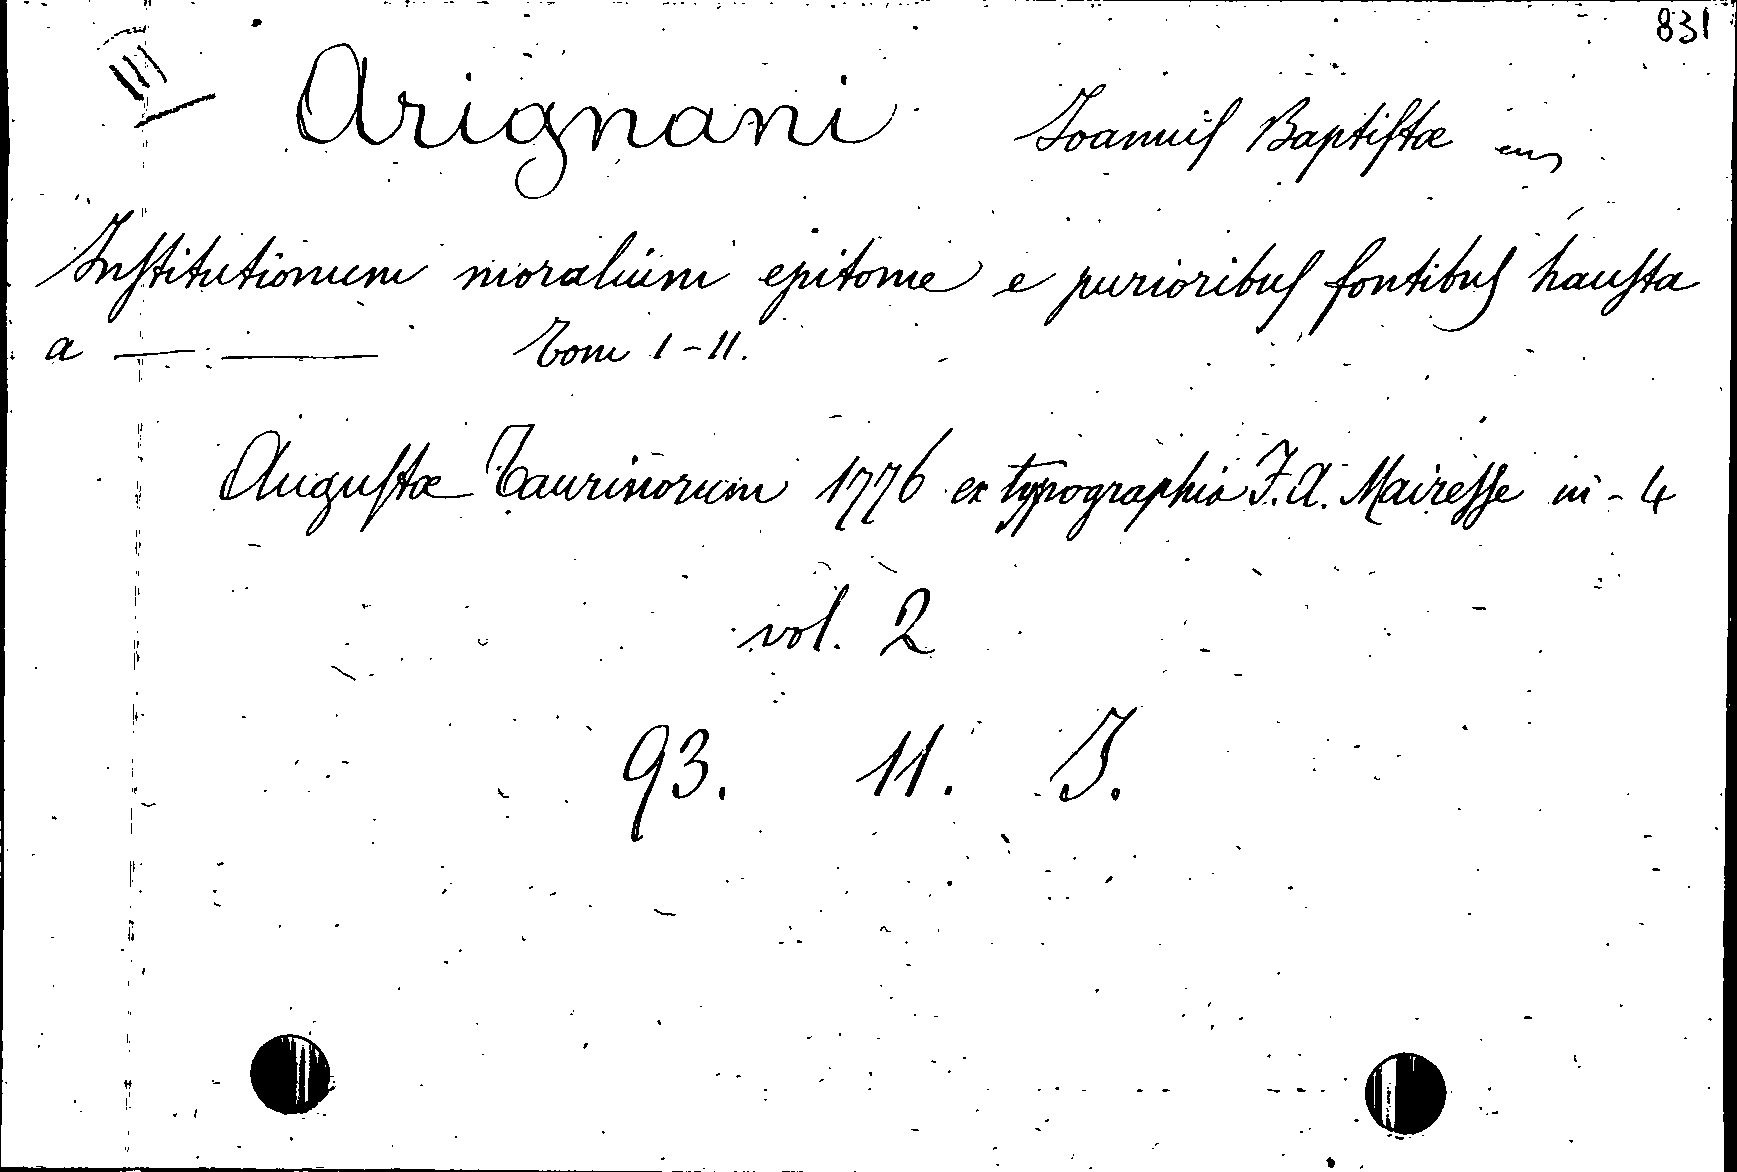 831
III
Arignani Joannis Baptistæ
Institutionum moralium epitome e purioribus fontibus hausta
a — — Tom I-II.
Augustæ Taurinorum 1776 ex typographia J. A. Mairesse in-4
vol. 2
93. 11. J.